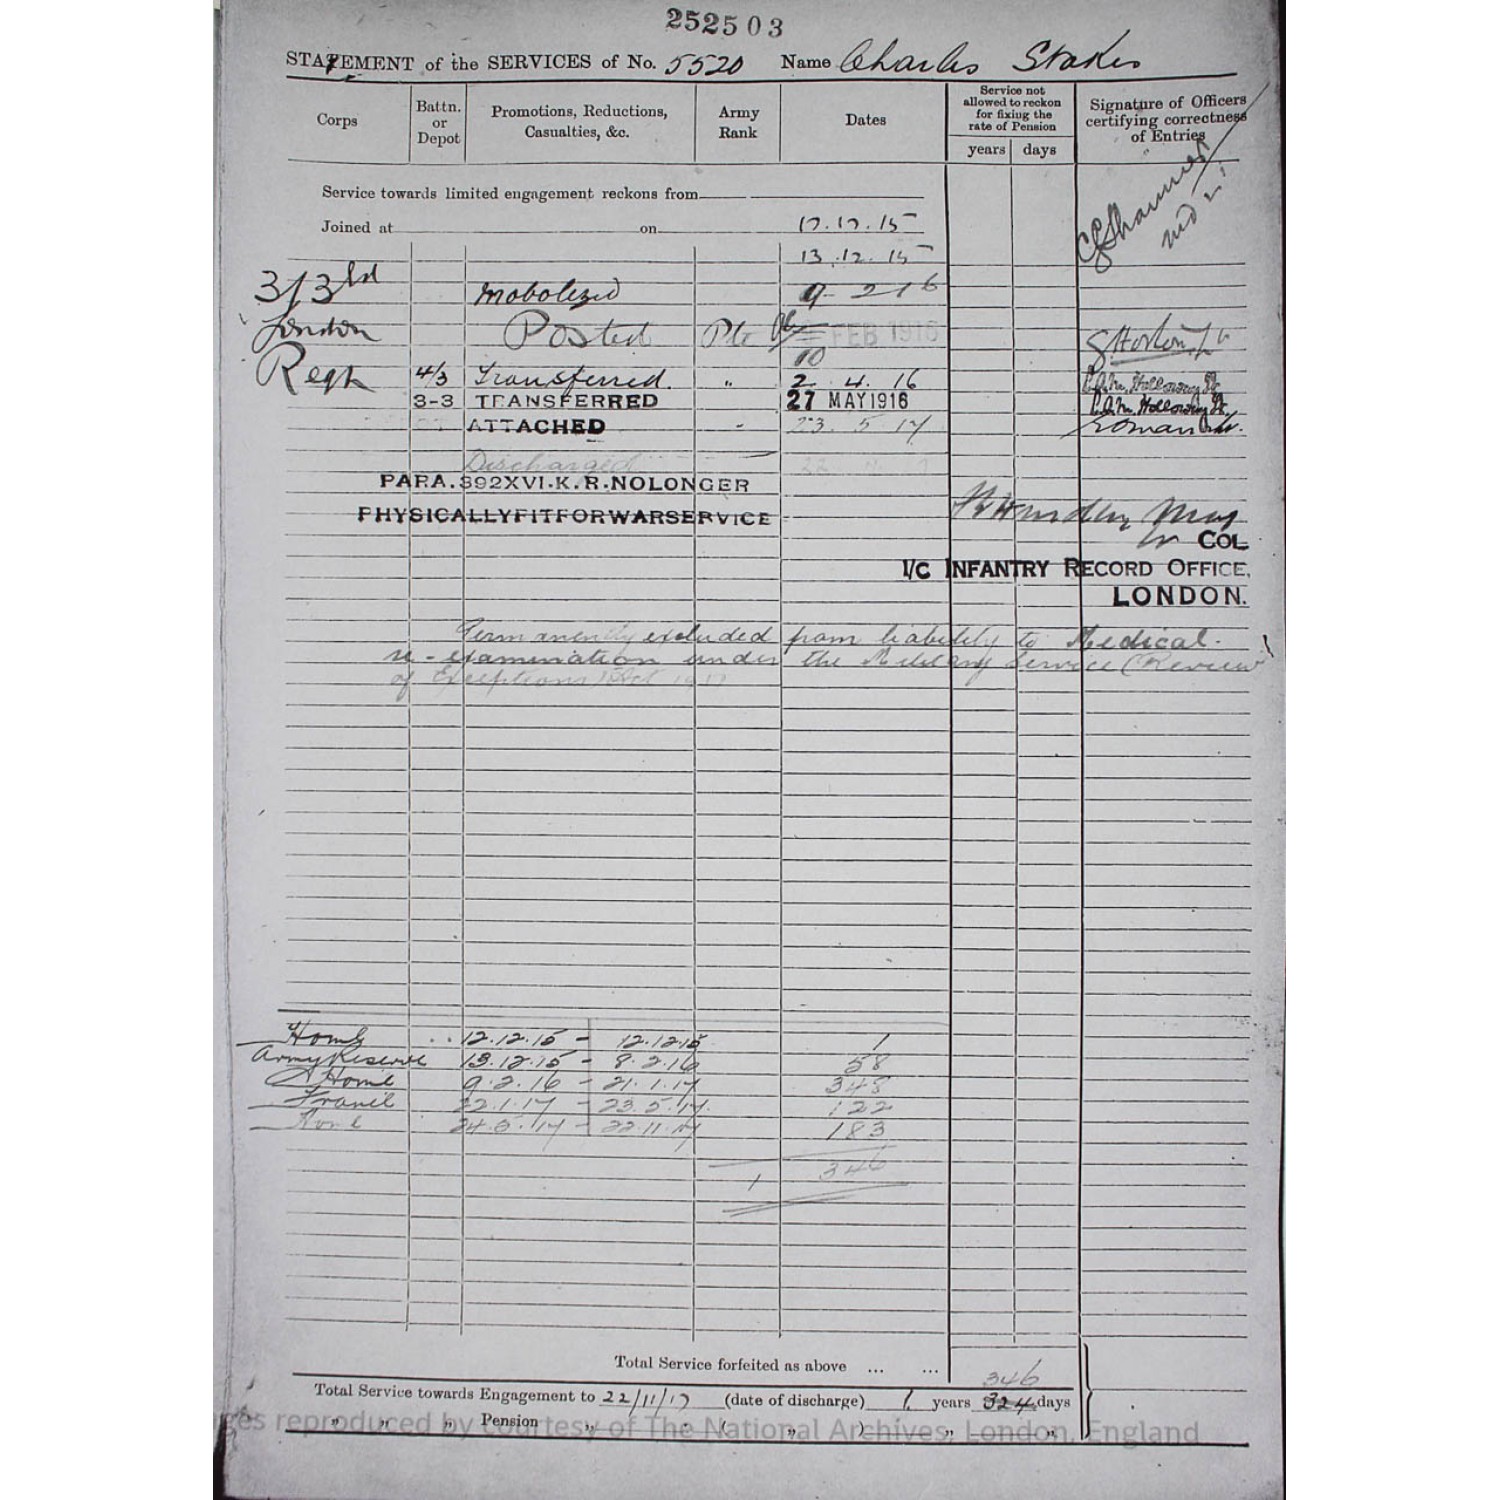 252503
STATEMENT of the SERVICES of No. 5520 Name Charles Stokes
Corps
Battn. or Depot
Promotions, Reductions, Casualties, &c.
Army Rank
Dates
Service not allowed to reckon for fixing the rate of Pension
years days
Signature of Officers certifying correctness of Entries
Service towards limited engagement reckons from
Joined at on 12.12.15
13.12.15
3/3rd Mobolized 9 2 16
London Posted Pte FEB 1916
10
Regt 4/3 Transferred. " 2 4. 16
3-3 TRANSFERRED 27 MAY 1916
ATTACHED - 23 5 17
Discharged
PARA.392XVI.K.R.NOLONGER
PHYSICALLYFITFORWARSERVICE
COL
I/C INFANTRY RECORD OFFICE,
LONDON.
Permanently excluded from liability to Medical.
re-examination under the Military Service (Review
of Exceptions) Act 1917
Home 12.12.15 - 12.12.15 1
Army Reserve 13.12.15 - 8.2.16 58
Home 9.2.16 - 21.1.17 348
France 22.1.17 - 23.5.17. 122
Home 24.5.17 - 22.11.17 183
1 346
Total Service forfeited as above ... ...
346
Total Service towards Engagement to 22/11/17 (date of discharge) 1 years 324 days
" " " Pension " ( " ) " "
ges reproduced by courtesy of The National Archives, London, England